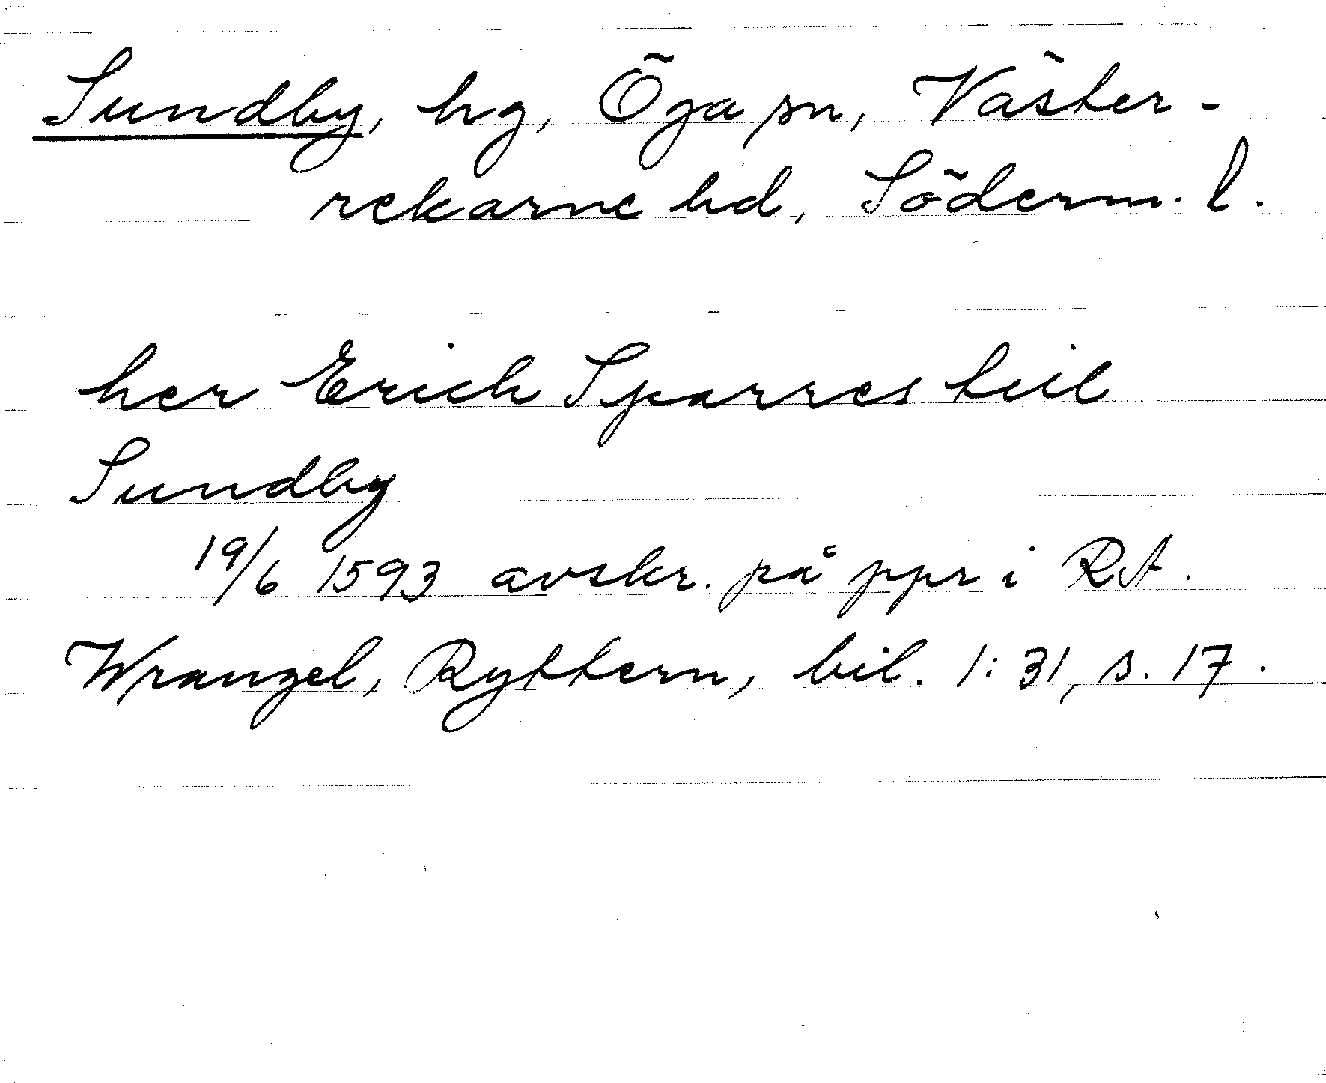 Sundby, hg, Öja sn, Väster-
rekarne hd, Söderm. l.
her Erich Sparres till
Sundby
19/6 1593 avskr. på ppr i RA.
Wrangel, Ryttern, bil. 1:31, s. 17.